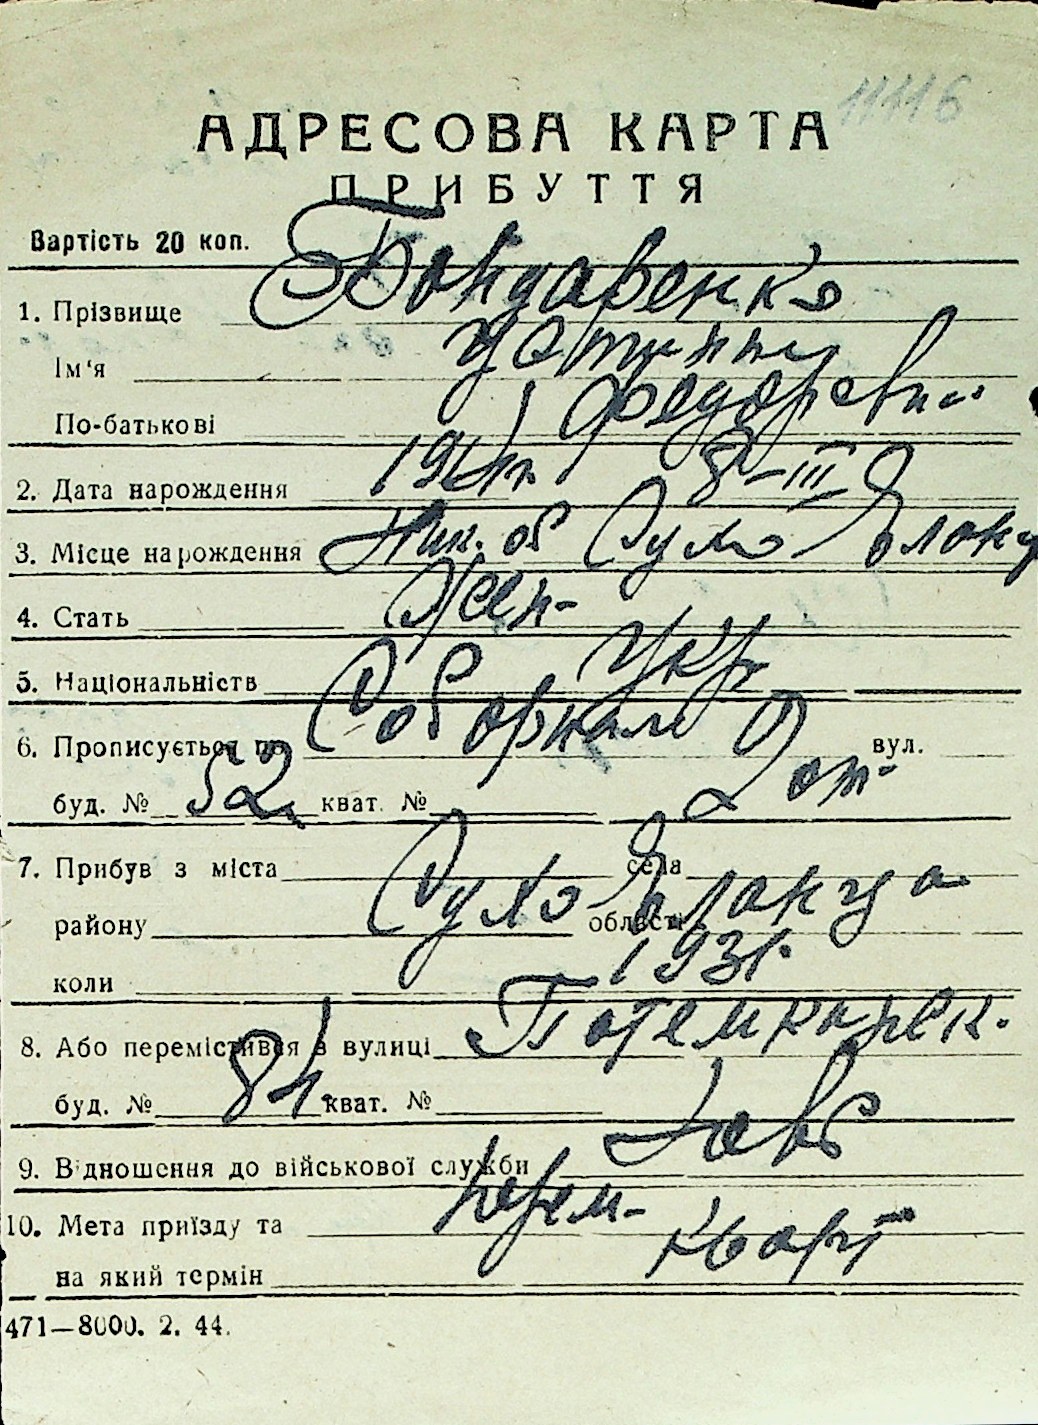 11116
АДРЕСОВА КАРТА
ПРИБУТТЯ
Вартість 20 коп.
1. Прізвище Бондаренко
Ім'я Устинья
По-батькові Федоровн
2. Дата народження 8-III
3. Місце народження Ник. об Сухо Еланец
4. Стать Жен-
5. Національніств Укр
6. Прописується по Соборная вул.
буд. № 52 кват. №
7. Прибув з міста села
району Сухо області
коли 1931.
8. Або перемістився з вулиці Потемкинск.
буд. № 81 кват. №
9. Відношення до військової служби
10. Мета приїзду та перем-
на який термін кварт
471—8000. 2. 44.